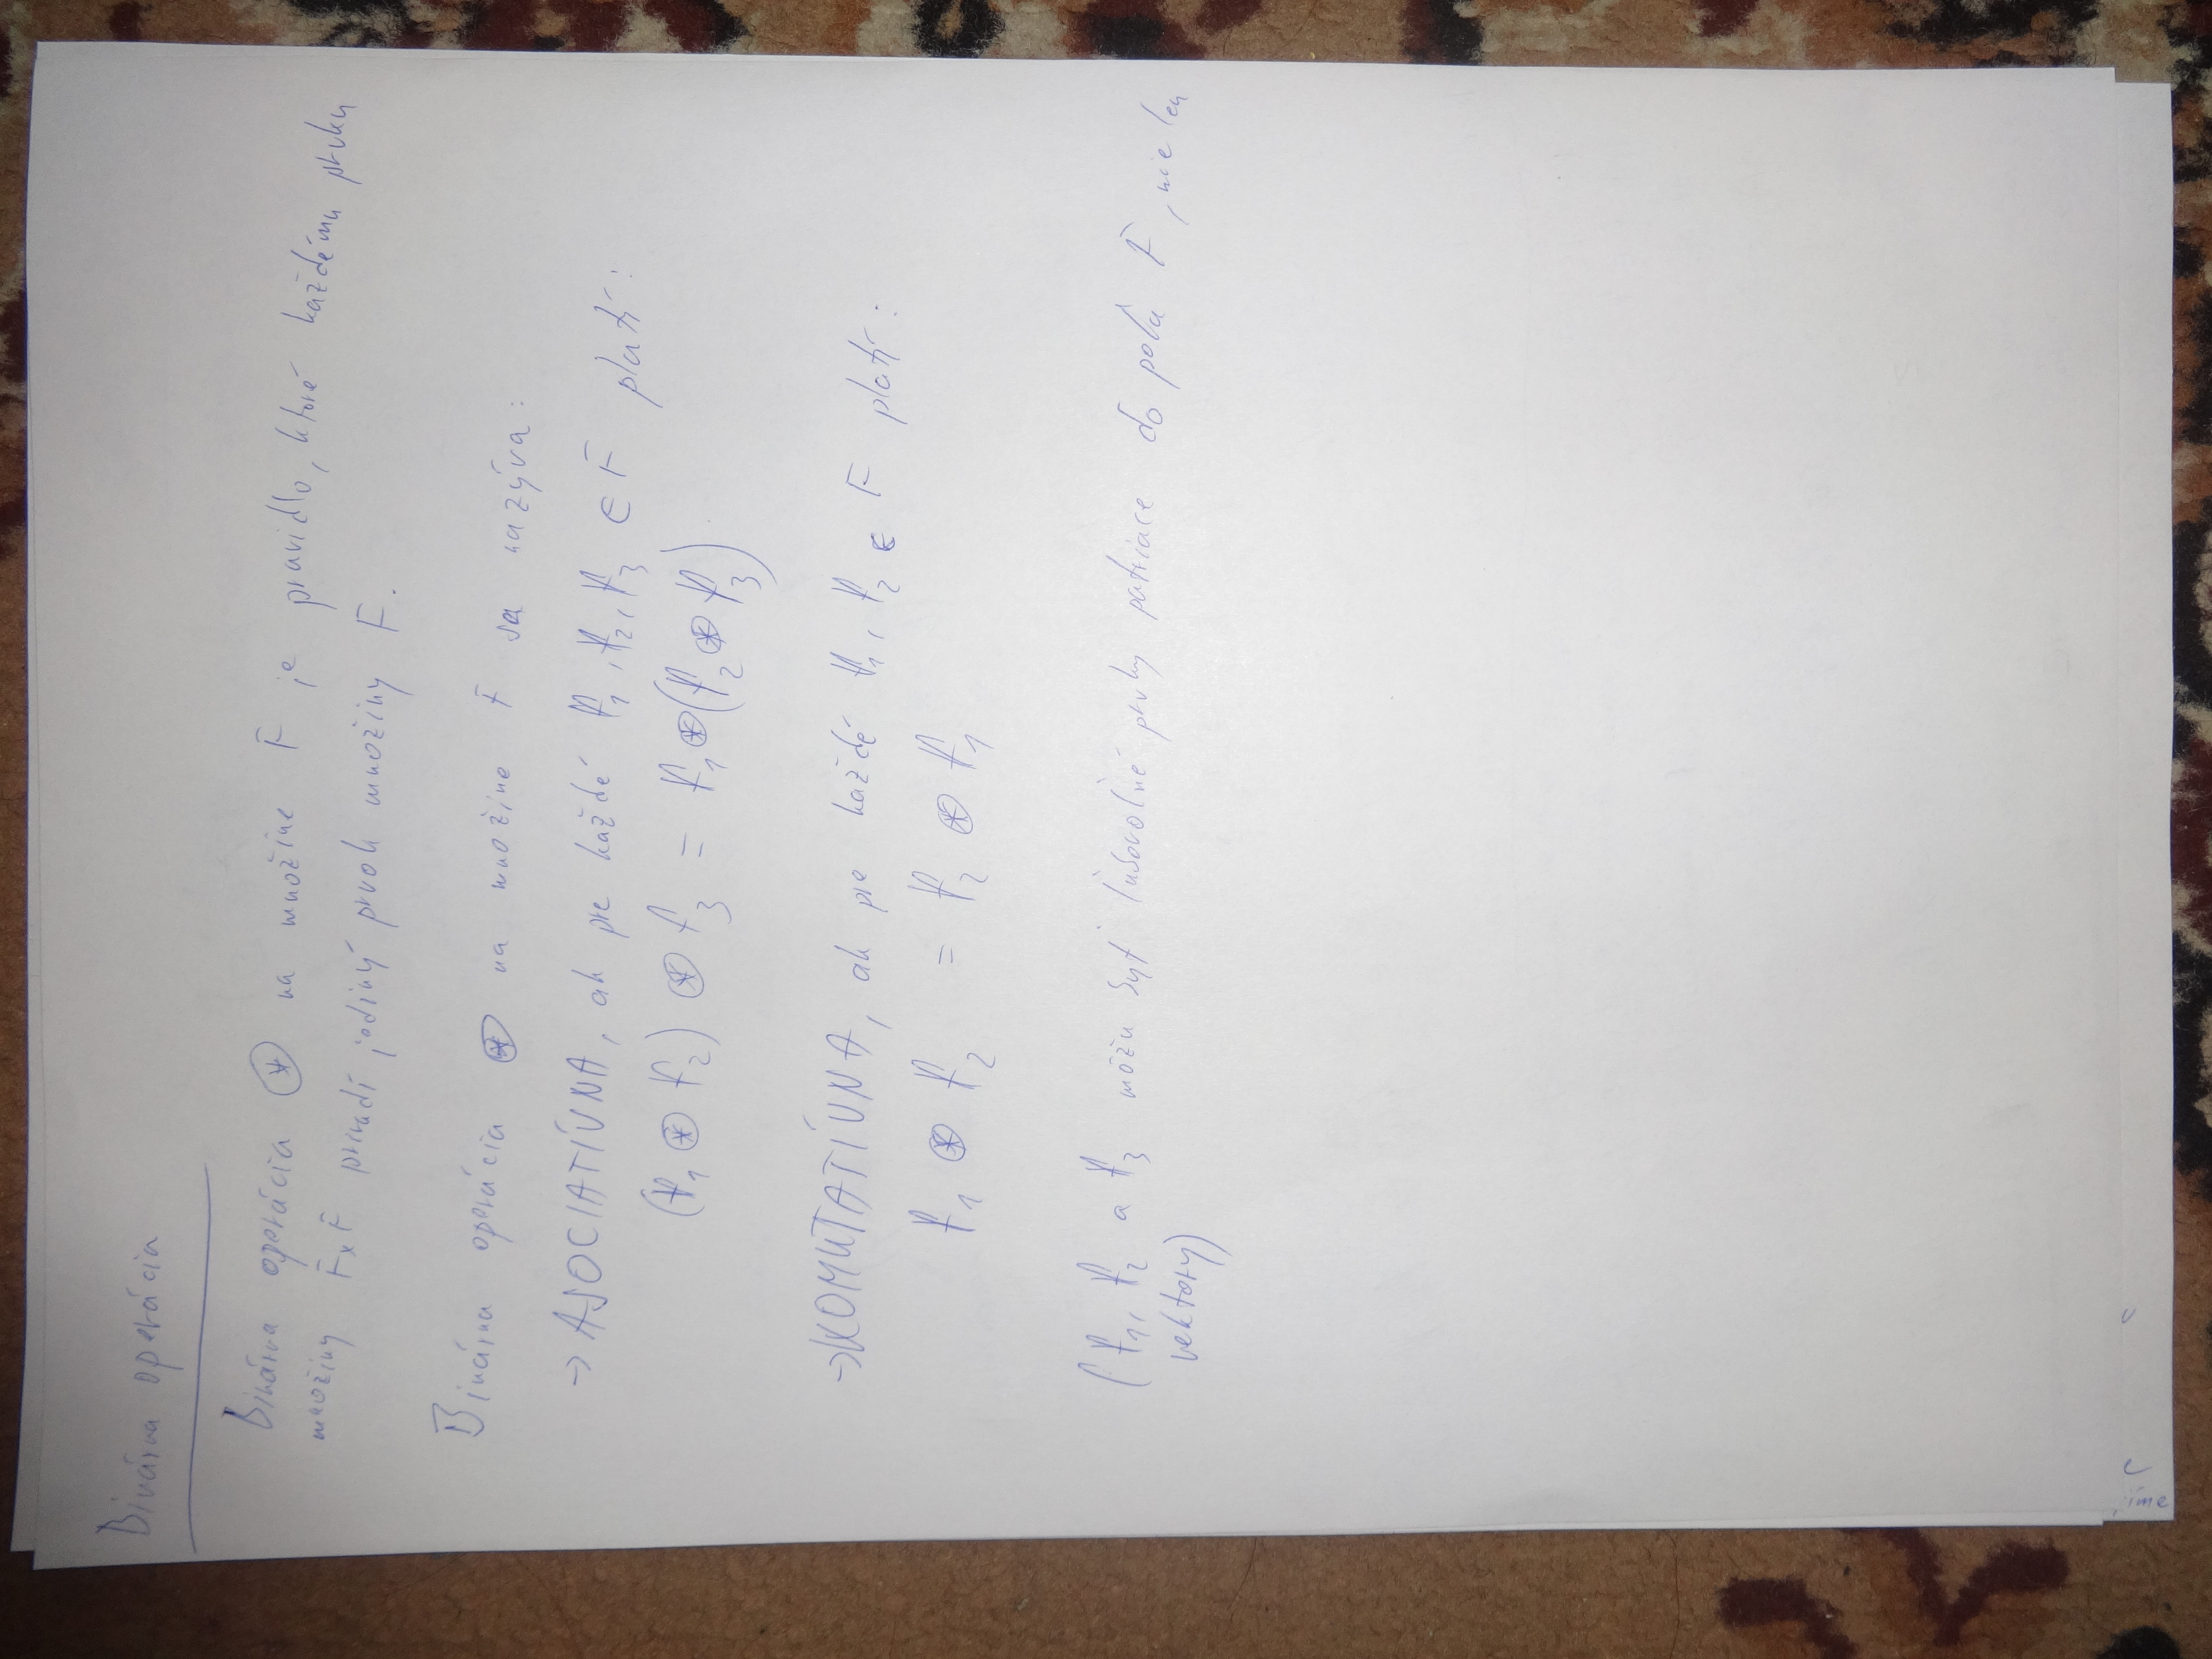 Binárna operácia
Binárna operácia ⊛ na množine F je pravidlo, ktoré každému prvku
množiny F×F priradí jediný prvok množiny F.
Binárna operácia ⊛ na množine F sa nazýva:
→ ASOCIATÍVNA, ak pre každé f₁, f₂, f₃ ∈ F platí:
(f₁ ⊛ f₂) ⊛ f₃ = f₁ ⊛ (f₂ ⊛ f₃)
→ KOMUTATÍVNA, ak pre každé f₁, f₂ ∈ F platí:
f₁ ⊛ f₂ = f₂ ⊛ f₁
(f₁, f₂ a f₃ môžu byť ľubovoľné prvky patriace do poľa F, nie len
vektory)